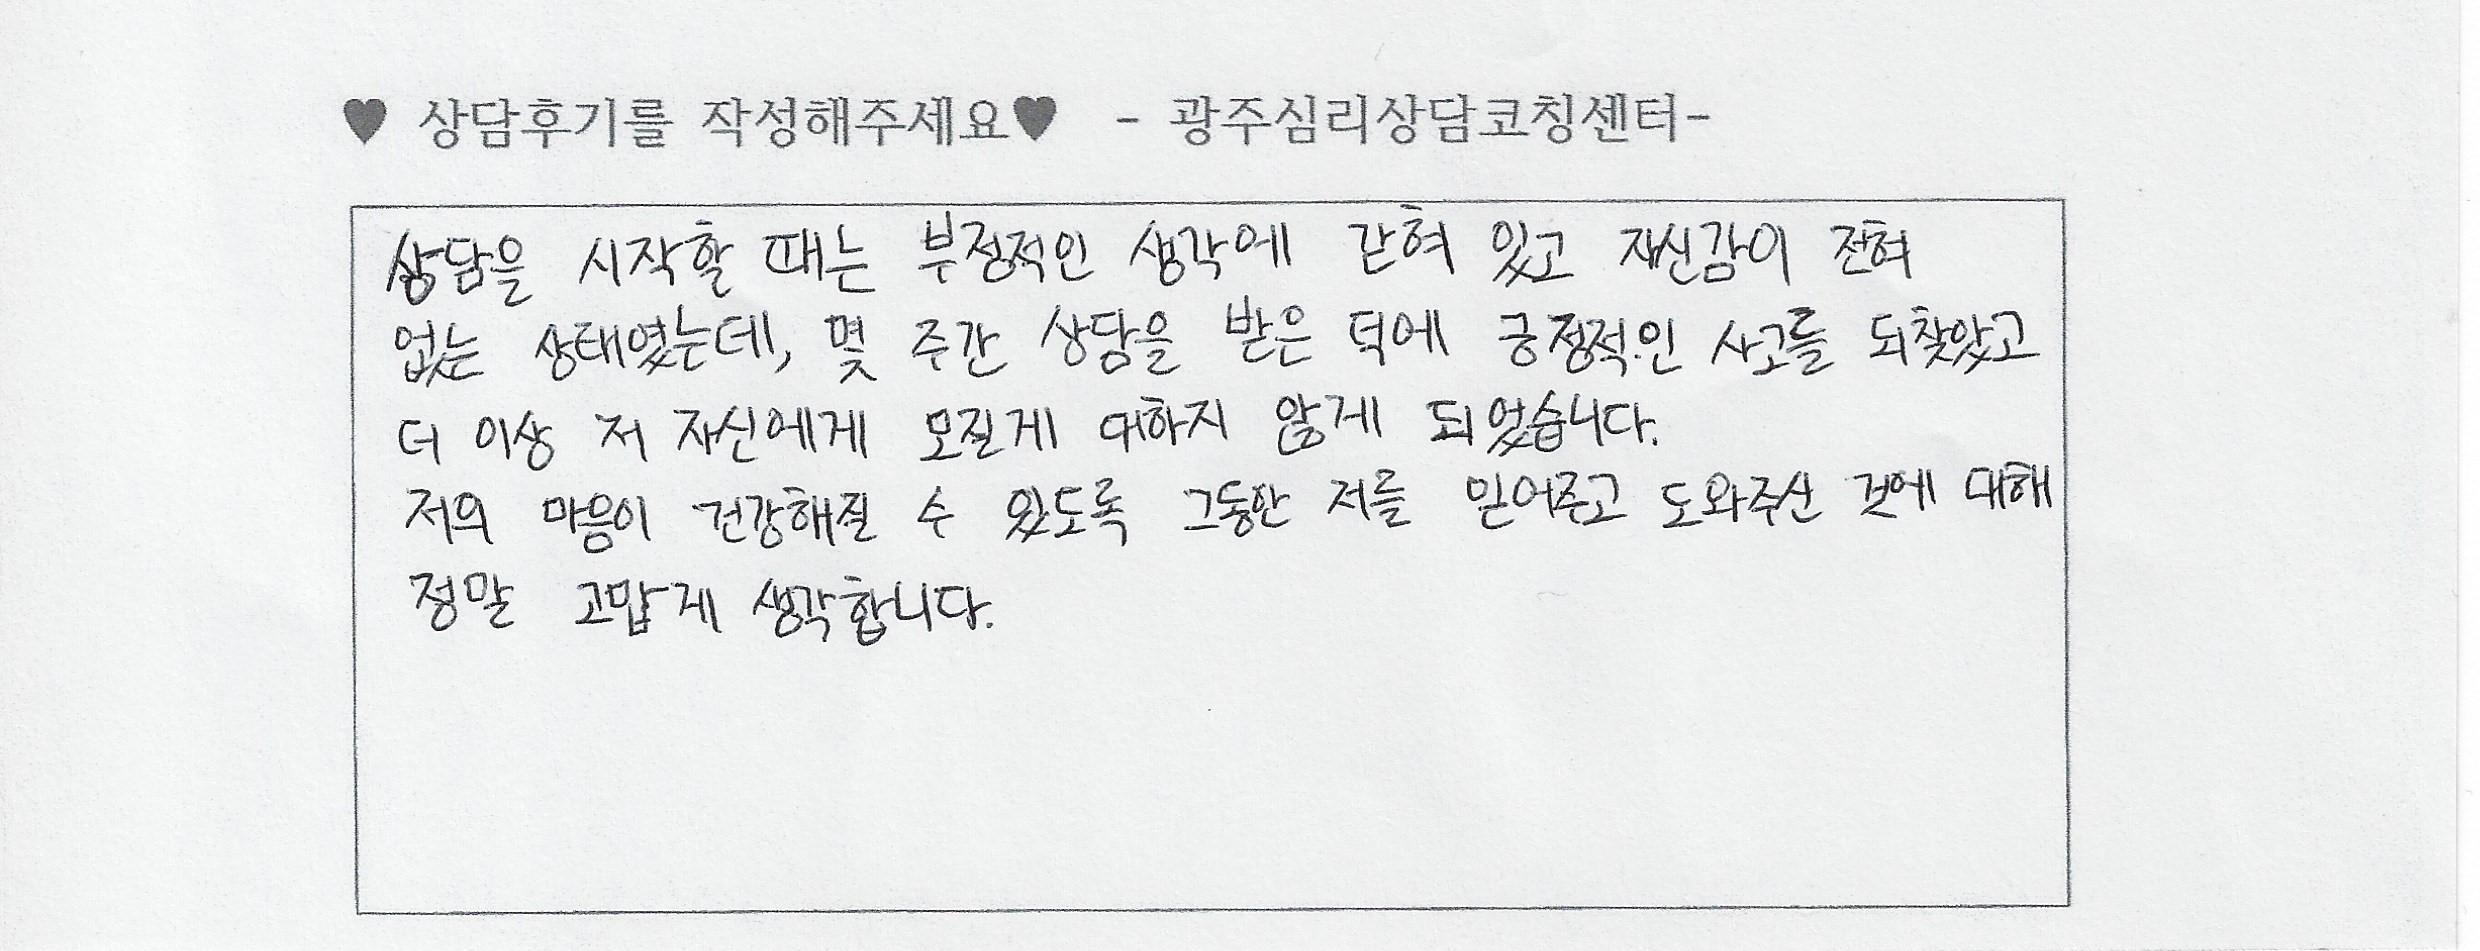 ♥ 상담후기를 작성해주세요♥ - 광주심리상담코칭센터-
상담을 시작할 때는 부정적인 생각에 갇혀 있고 자신감이 전혀
없는 상태였는데, 몇 주간 상담을 받은 덕에 긍정적인 사고를 되찾았고
더 이상 저 자신에게 모질게 대하지 않게 되었습니다.
저의 마음이 건강해질 수 있도록 그동안 저를 믿어주고 도와주신 것에 대해
정말 고맙게 생각합니다.